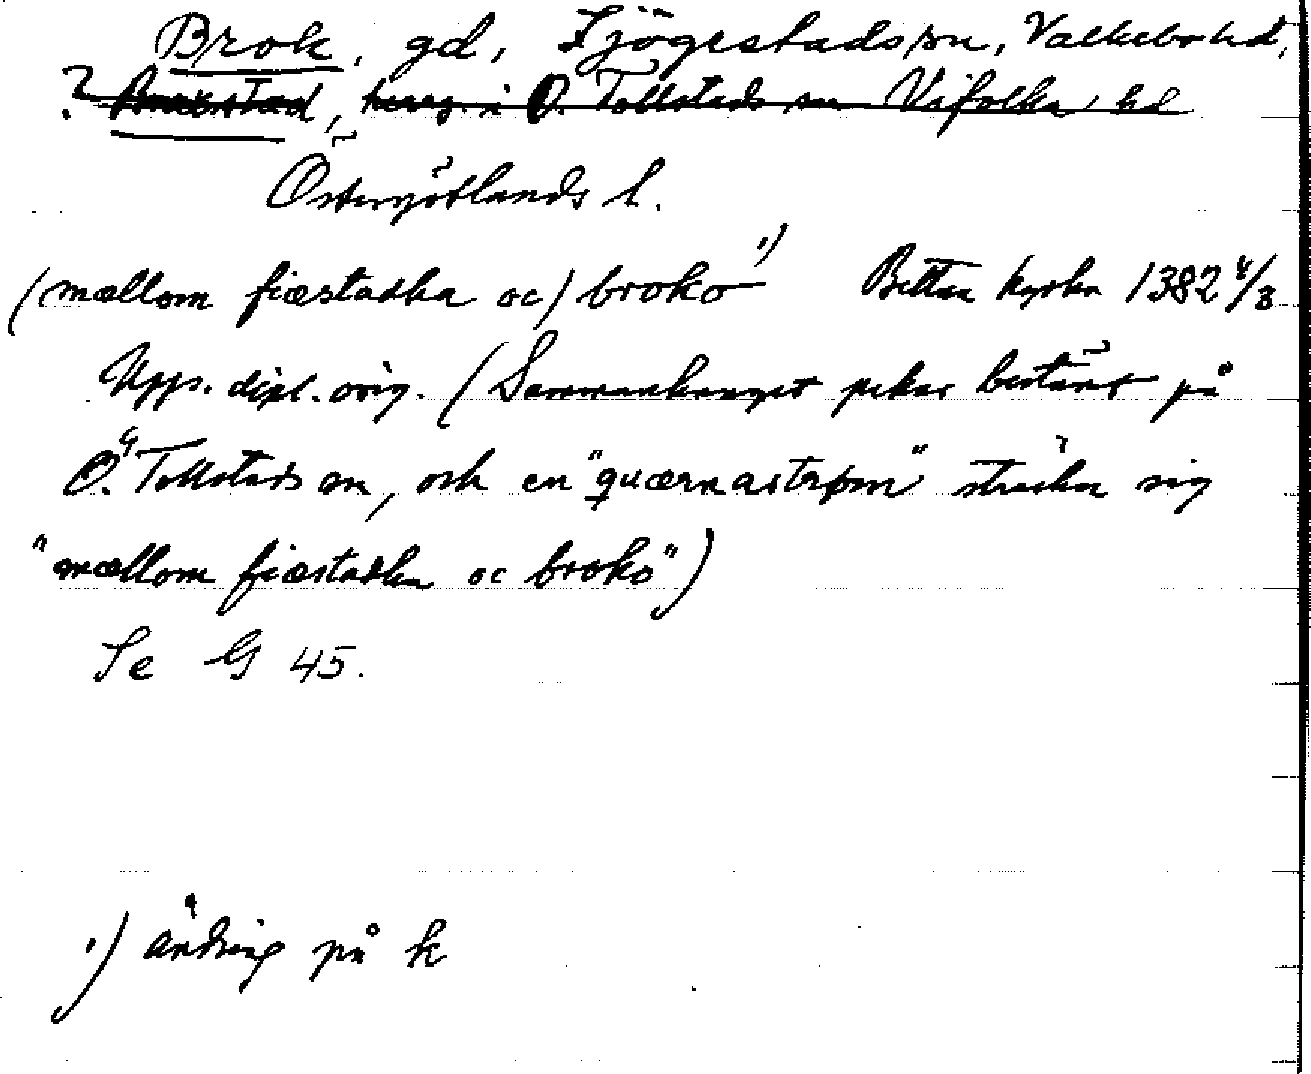 Brok, gd, Sjögestads sn, Valkebo hd,
? herrg. i Ö. Tollstads sn Vifolka hd
Östergötlands l.
(mællom fiæstadha oc) broko ¹) kyrka 1382 4/3
Upps. dipl. orig. (Sammanhanget pekar bestämt på
Ö. Tollstads sn, och en "quærnastrøm" sträcker sig
"mællom fiæstadha oc broko")
Se G 45.
¹) ändring på k